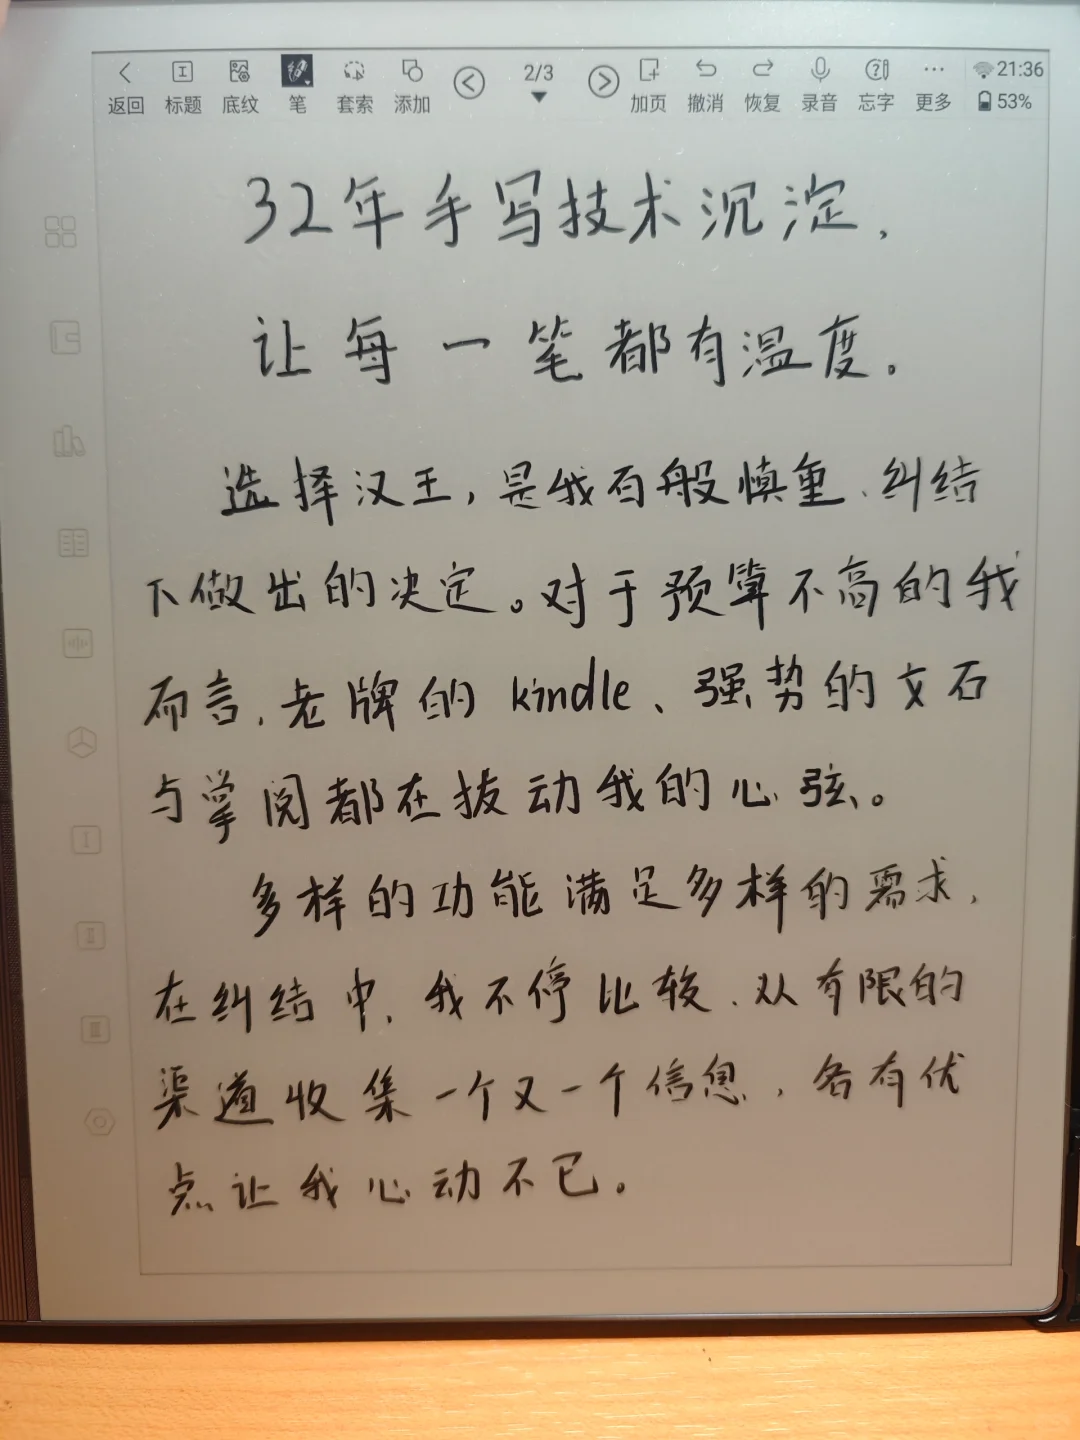 返回 标题 底纹 笔 套索 添加 2/3 加页 撤消 恢复 录音 忘字 更多 21:36 53%
32年手写技术沉淀,
让每一笔都有温度。
选择汉王,是我百般慎重、纠结
下做出的决定。对于预算不高的我
而言,老牌的kindle、强势的文石
与掌阅都在拔动我的心弦。
多样的功能满足多样的需求,
在纠结中,我不停比较、从有限的
渠道收集一个又一个信息,各有优
点让我心动不已。